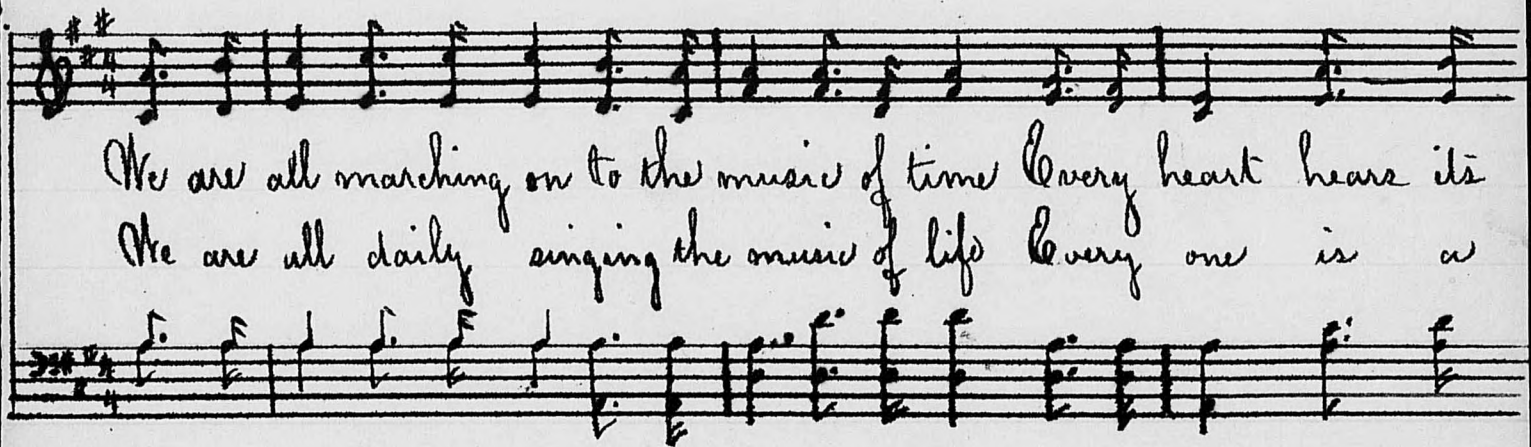 We are all marching on to the music of time Every heart hears its
We are all daily singing the music of life Every one is a